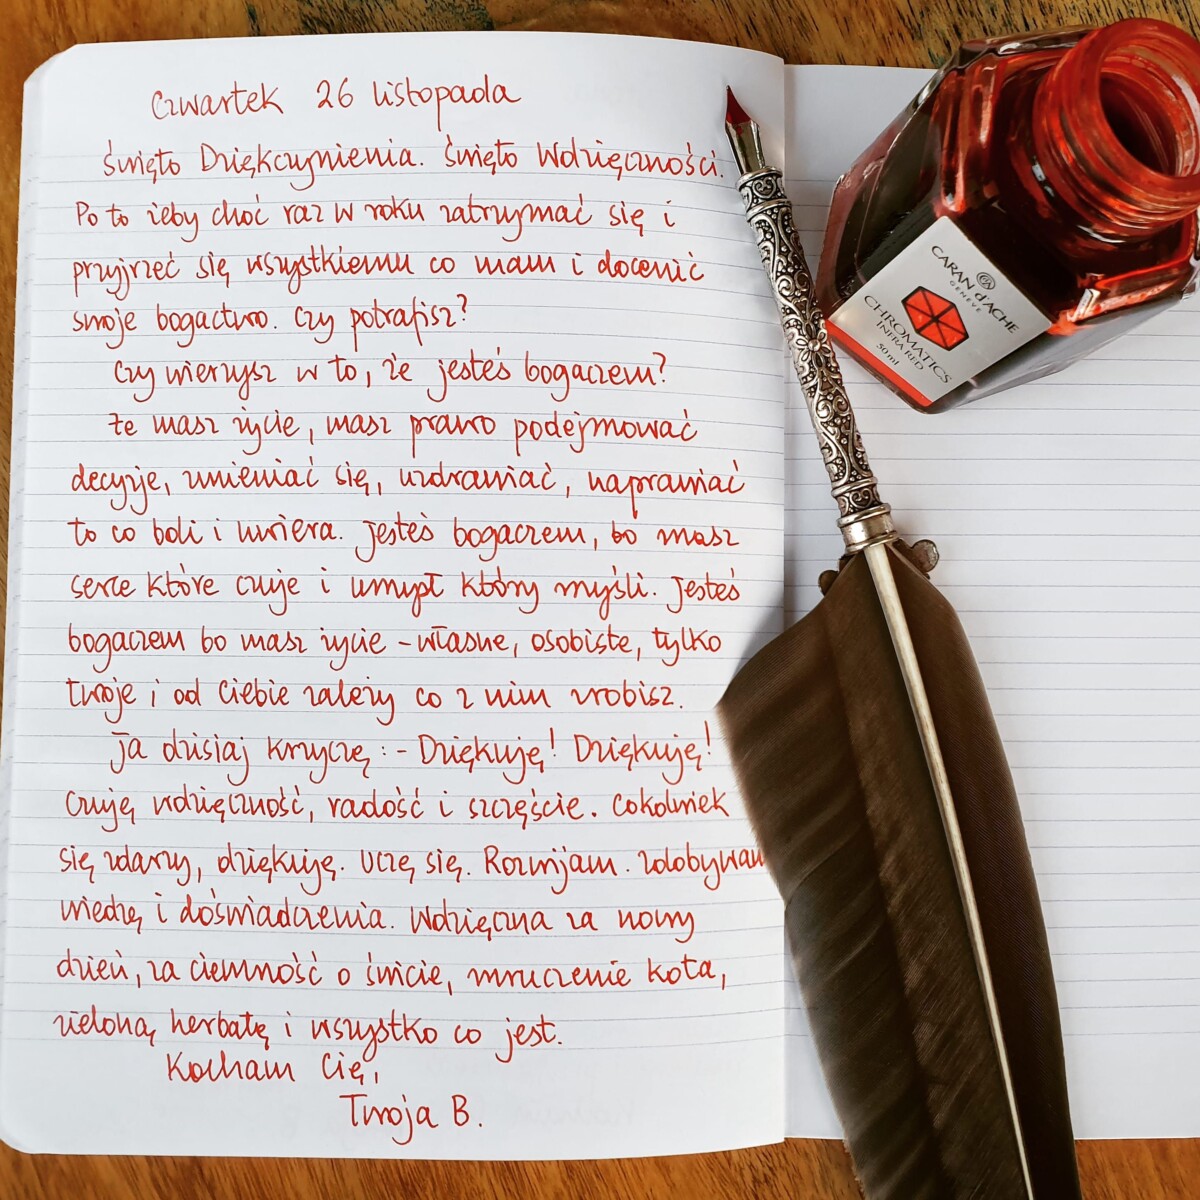 Czwartek 26 listopada
Święto Dziękczynienia. Święto Wdzięczności.
Po to żeby choć raz w roku zatrzymać się i
przyjrzeć się wszystkiemu co mam i docenić
swoje bogactwo. Czy potrafisz?
Czy wierzysz w to, że jesteś bogaczem?
Że masz życie, masz prawo podejmować
decyzje, zmieniać się, uzdrawiać, naprawiać
to co boli i uwiera. Jesteś bogaczem, bo masz
serce które czuje i umysł który myśli. Jesteś
bogaczem bo masz życie - własne, osobiste, tylko
twoje i od Ciebie zależy co z nim zrobisz.
Ja dzisiaj krzyczę :- Dziękuję! Dziękuję!
Czuję wdzięczność, radość i szczęście. Cokolwiek
się zdarzy, dziękuję. Uczę się. Rozwijam. Zdobywam
wiedzę i doświadczenia. Wdzięczna za nowy
dzień, za ciemność o świcie, mruczenie kota,
zieloną herbatę i wszystko co jest.
Kocham Cię,
Twoja B.
CARAN d'ACHE
GENÈVE
CHROMATICS
INFRA RED
50 ml